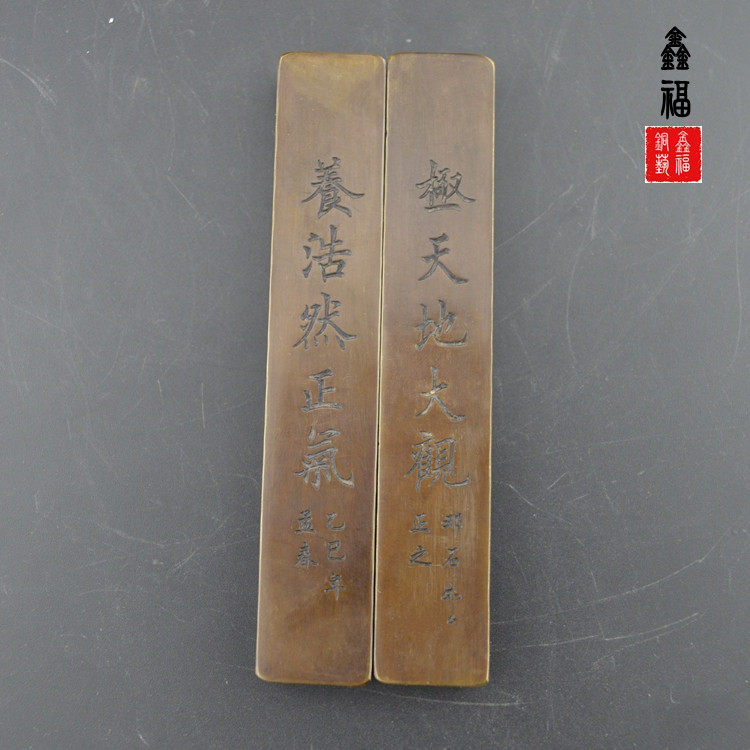 極天地大觀
石
正之
養浩然正氣
乙巳年
孟春
鑫福
鑫福
銅藝